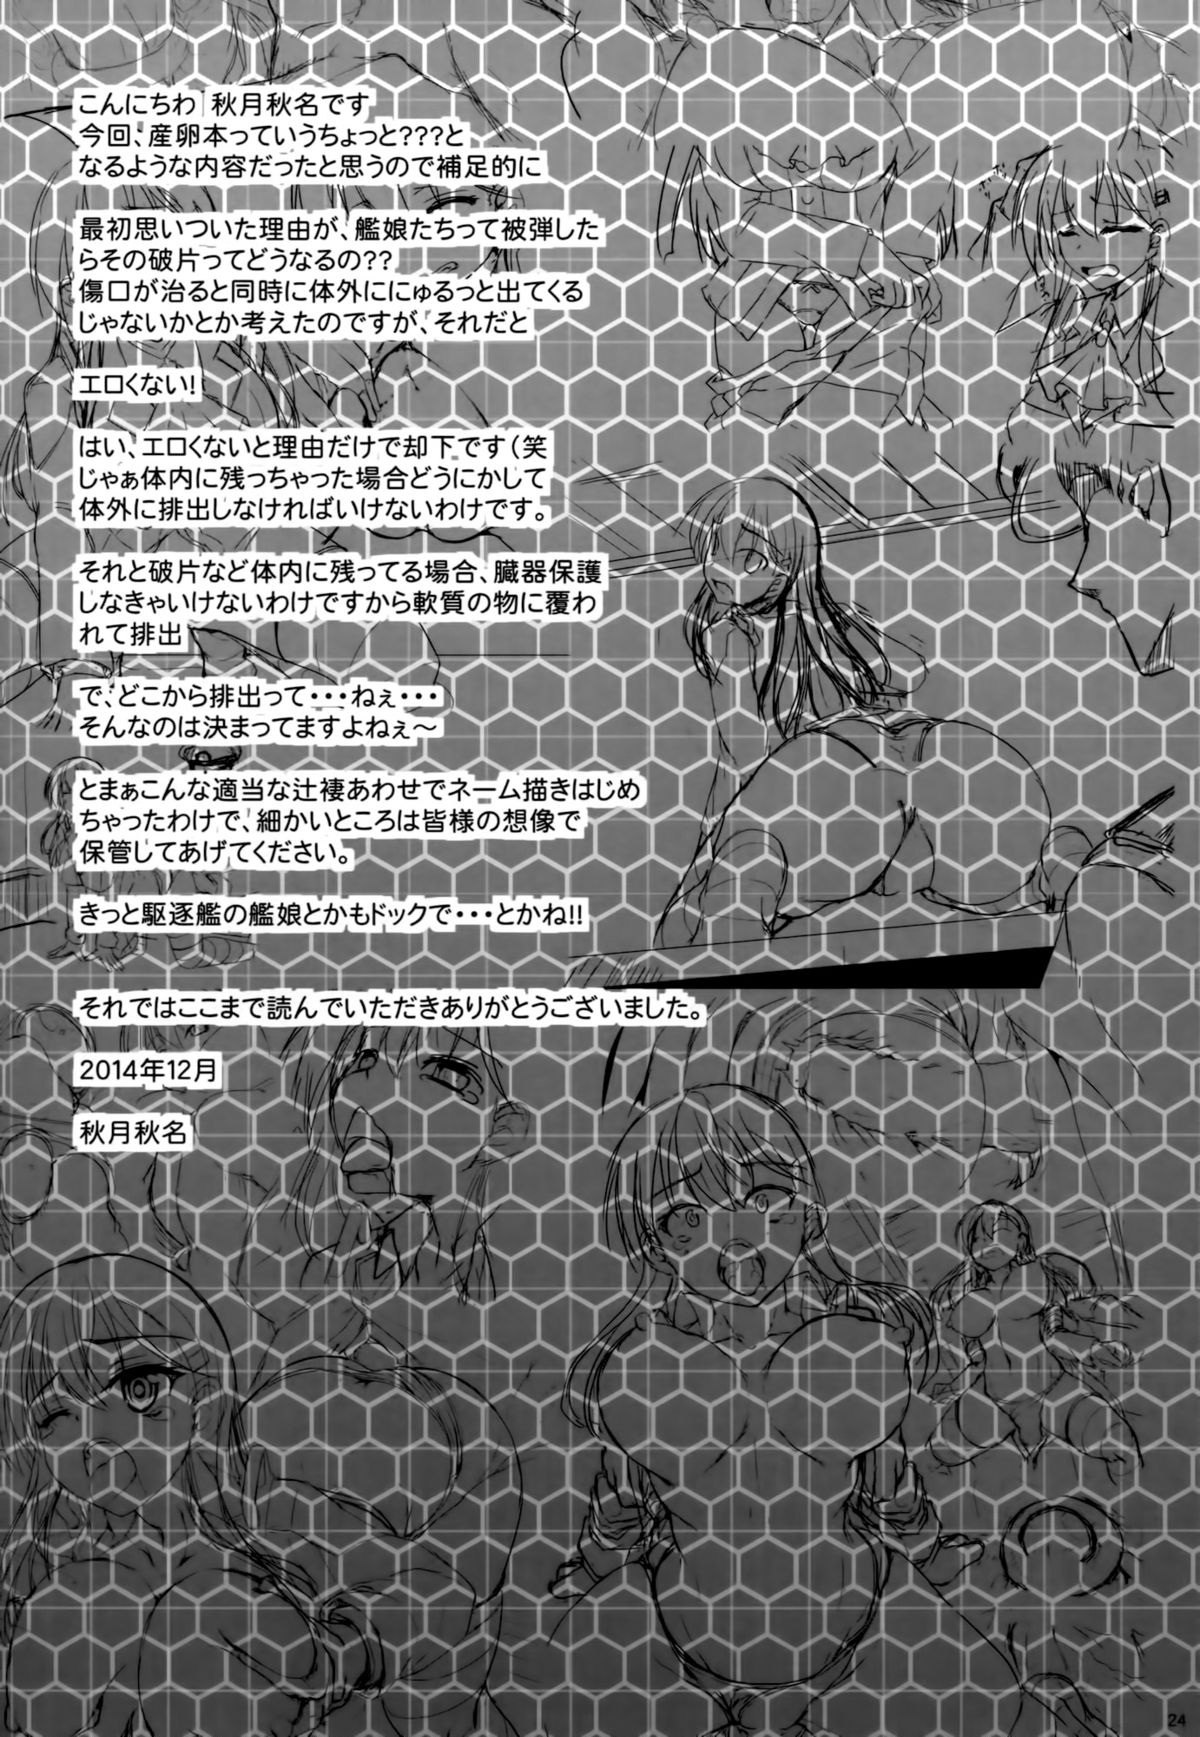 こんにちわ 秋月秋名です
今回、産卵本っていうちょっと???と
なるような内容だったと思うので補足的に
最初思いついた理由が、艦娘たちって被弾した
らその破片ってどうなるの??
傷口が治ると同時に体外ににゅるっと出てくる
じゃないかとか考えたのですが、それだと
エロくない!
はい、エロくないと理由だけで却下です(笑
じゃぁ体内に残っちゃった場合どうにかして
体外に排出しなければいけないわけです。
それと破片など体内に残ってる場合、臓器保護
しなきゃいけないわけですから軟質の物に覆わ
れて排出
で、どこから排出って・・・ねぇ・・・
そんなのは決まってますよねぇ～
とまぁこんな適当な辻褄あわせでネーム描きはじめ
ちゃったわけで、細かいところは皆様の想像で
保管してあげてください。
きっと駆逐艦の艦娘とかもドックで・・・とかね!!
それではここまで読んでいただきありがとうございました。
2014年12月
秋月秋名
24